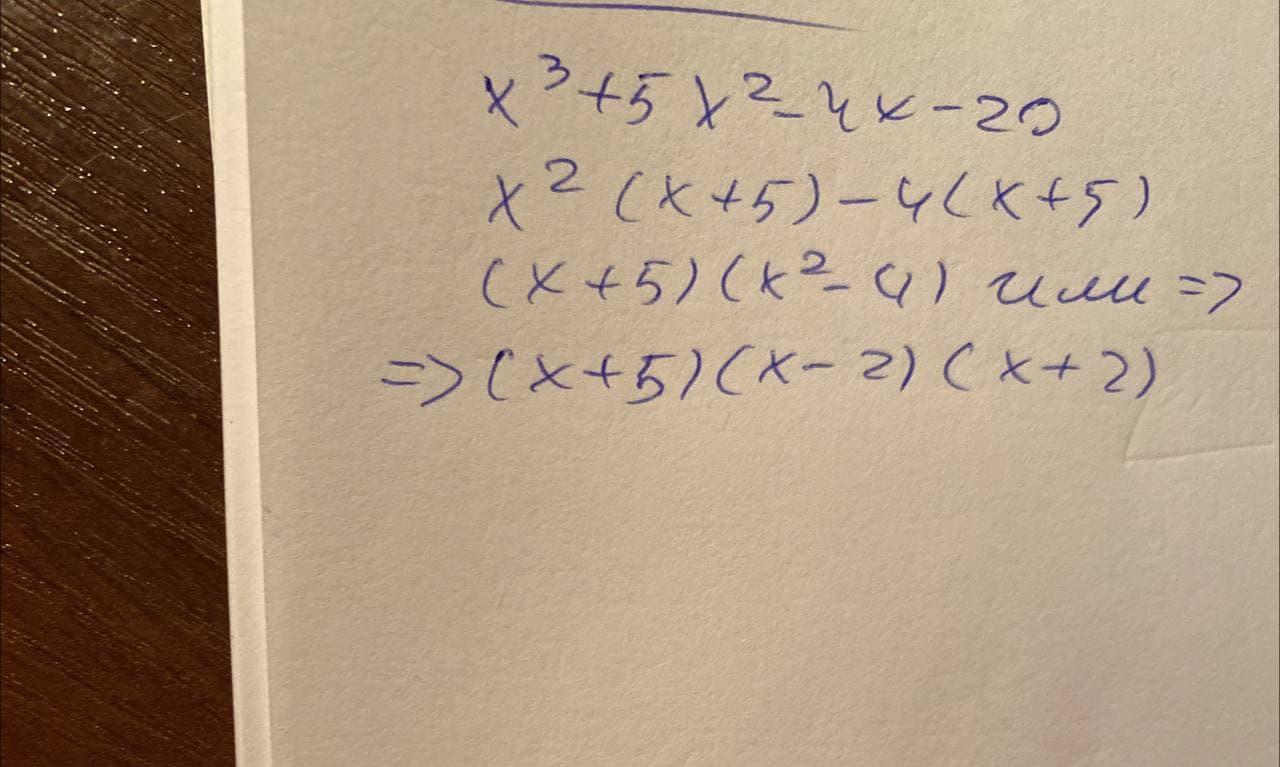 x³+5x²-4x-20
x²(x+5)-4(x+5)
(x+5)(x²-4) или =>
=> (x+5)(x-2)(x+2)